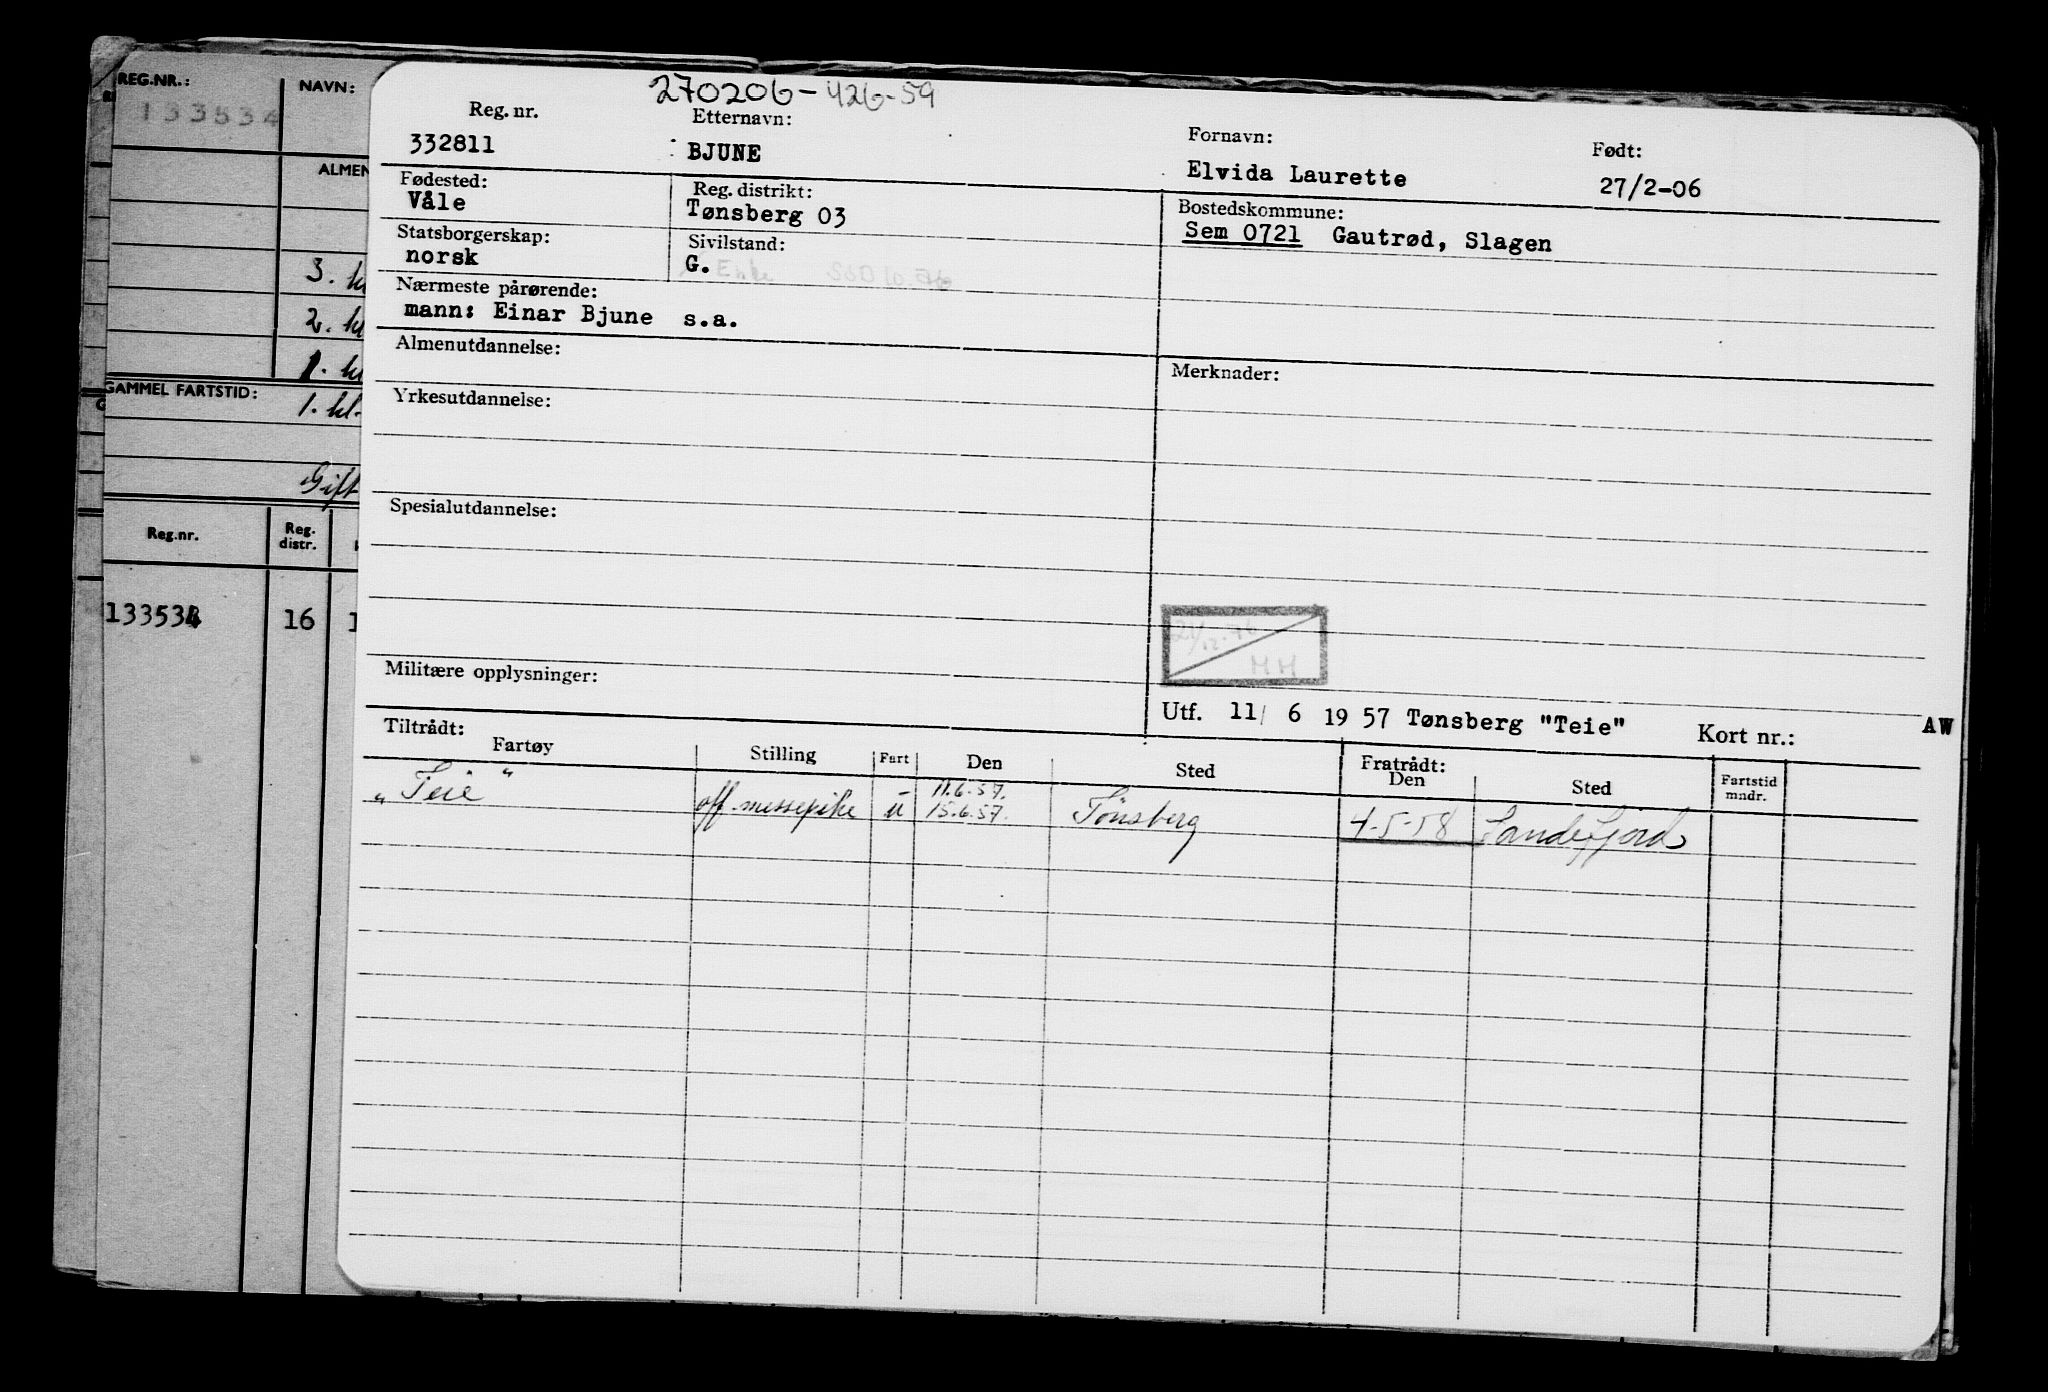 REG.NR.:
NAVN:
133534
ALMEN
3. kl
2. kl
1. kl
GAMMEL FARTSTID:
1. kl.
Gift
Reg.nr.
Reg. distr.
133534
16
270206-426-59
Reg. nr.
Etternavn:
Fornavn:
Født:
332811
BJUNE
Elvida Laurette
27/2-06
Fødested:
Reg. distrikt:
Bostedskommune:
Våle
Tønsberg 03
Sem 0721 Gautrød, Slagen
Statsborgerskap:
Sivilstand:
norsk
G. Enke
Nærmeste pårørende:
mann: Einar Bjune s.a.
Almenutdannelse:
Merknader:
Yrkesutdannelse:
Spesialutdannelse:
21/12.76
HH
Militære opplysninger:
Utf. 11/ 6 19 57 Tønsberg "Teie" Kort nr.: AW
Tiltrådt:
Fartøy
Stilling
Fart
Den
Sted
Fratrådt:
Den
Sted
Fartstid
mndr.
11.6.57.
"Teie" off.messepike u 15.6.57. Tønsberg 4-5-58 Sandefjord